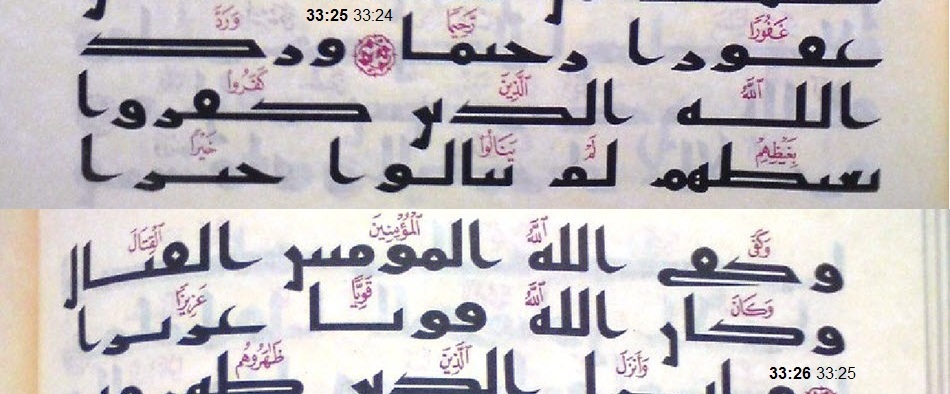 33:25 33:24
غَفُورًا رَّحِيمًا وَرَدَّ
عفورا رحىما ورد
ٱللَّهُ ٱلَّذِينَ كَفَرُوا۟
الله الدىں كفروا
بِغَيْظِهِمْ لَمْ يَنَالُوا۟ خَيْرًا
ىعىطهم لم ىىالوا حىرا
وَكَفَى ٱللَّهُ ٱلْمُؤْمِنِينَ ٱلْقِتَالَ
وكفى الله المومىىں القىال
وَكَانَ ٱللَّهُ قَوِيًّا عَزِيزًا
وكاں الله قوىا عرىرا
33:26 33:25
وَأَنزَلَ ٱلَّذِينَ ظَٰهَرُوهُم